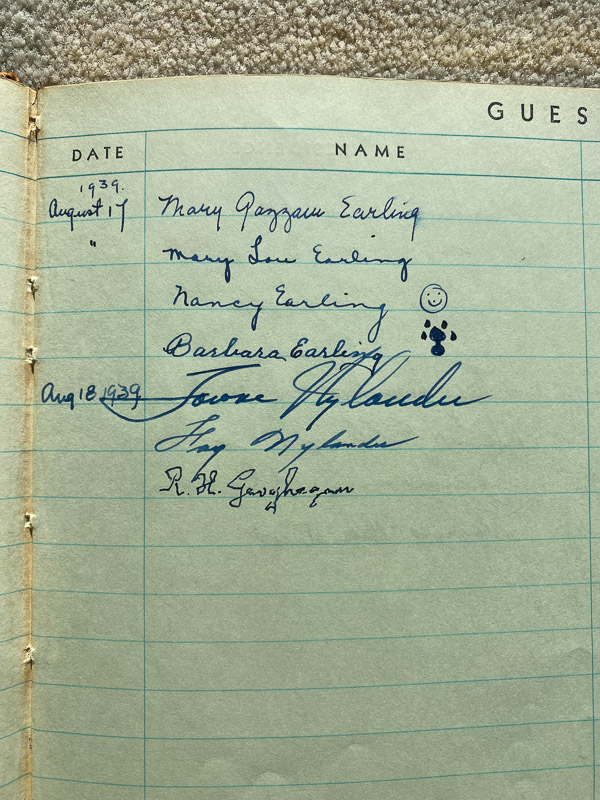 GUES
DATE NAME
1939.
August 17 Mary Gazzam Earling
" Mary Lou Earling
Nancy Earling
Barbara Earling
Aug 18 1939 Nylander
Fay Nylander
R. H. Geoghegan